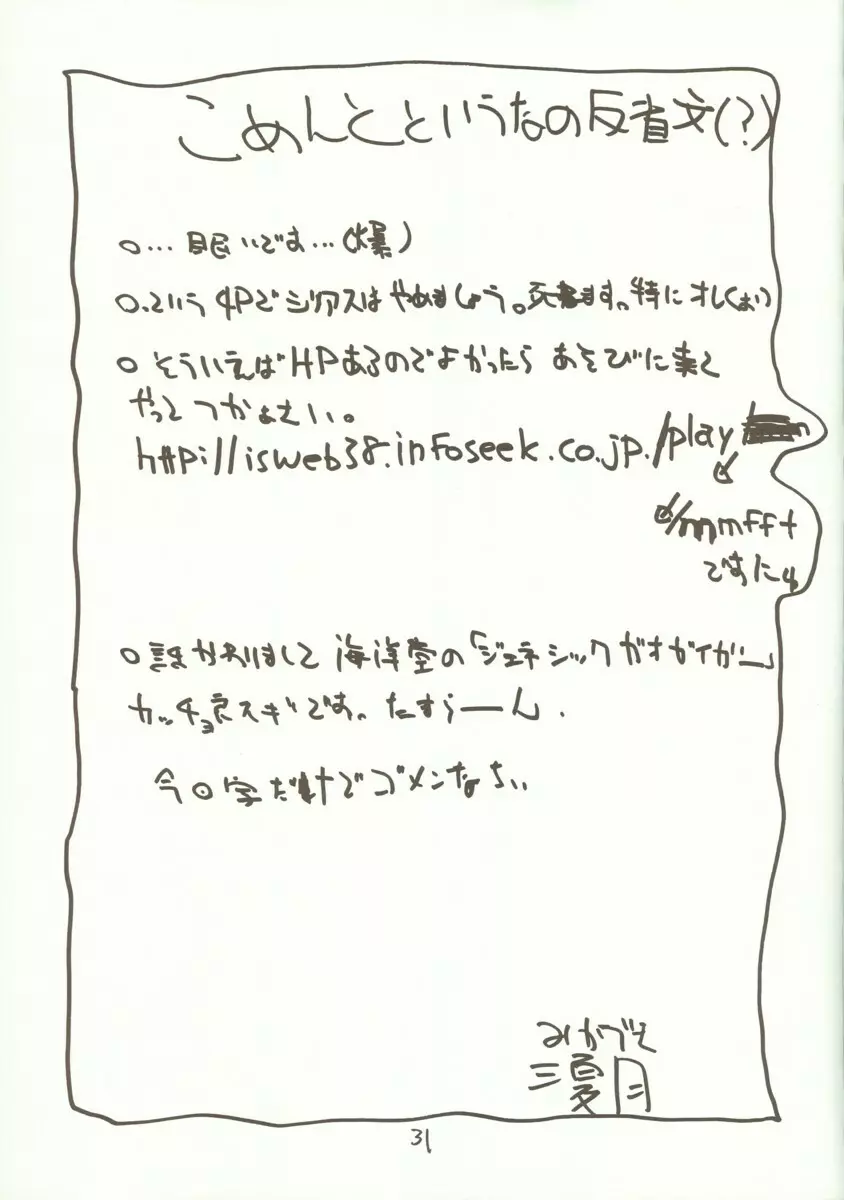 こめんとというなの反省文(?)
○…眠いです…(爆)
○.という4Pでジアスはやめましょう。死ねます。特にオレ(おい)
○そういえばHPあるのでよかったらあそびに来て
やってつかぁさい。
http://isweb38.infoseek.co.jp./play
/mmfft
ですにゅ
○誰か 海洋堂の「ジェネシックガオガイガー」
カッチョ良スギです。たすらーん.
今回字だけでゴメンなさい
みかづき
三夏月
31